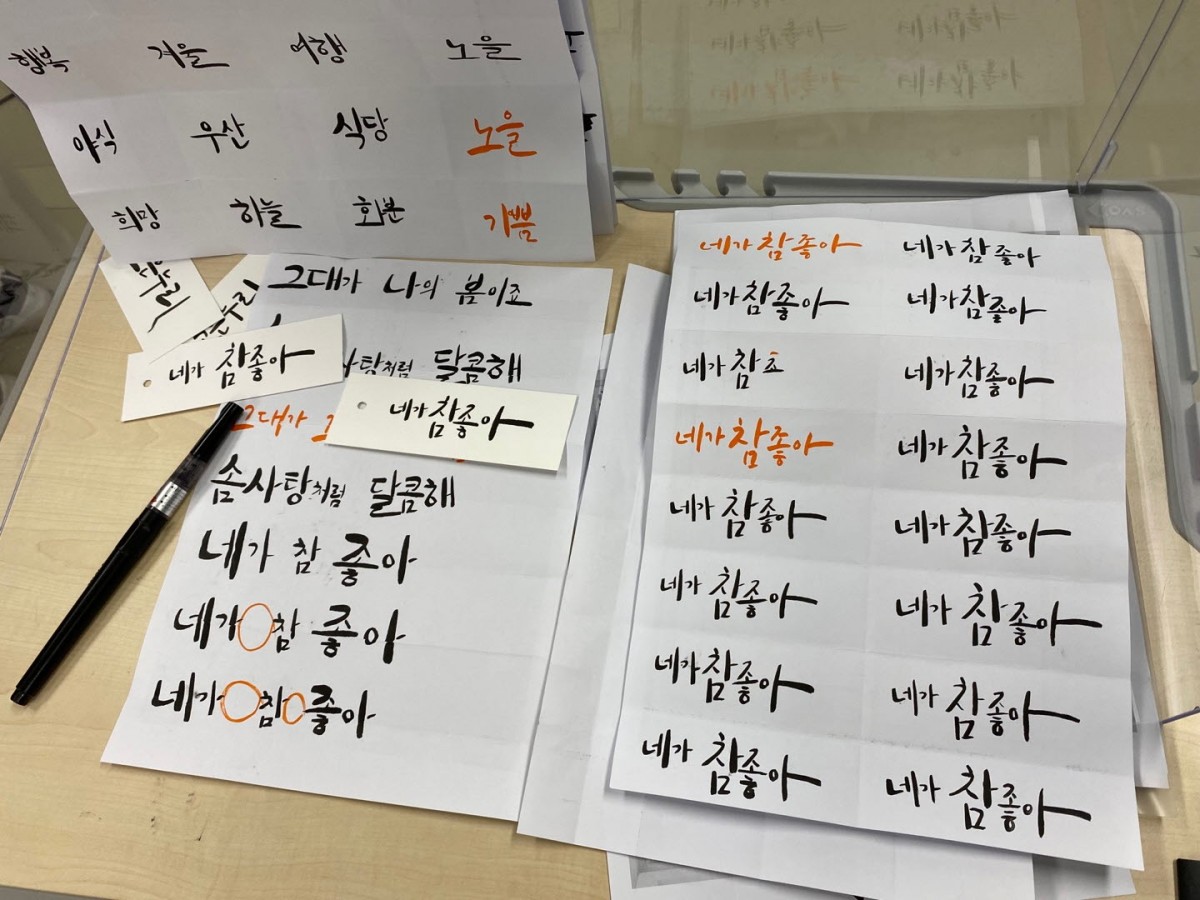 행복 겨울 여행 노을
야식 우산 식당 노을
희망 하늘 화분 기쁨
그대가 나의 봄이죠
사탕처럼 달콤해
네가 참좋아
네가 참좋아
그대가
솜사탕처럼 달콤해
네가 참 좋아
네가 참 좋아
네가 참 좋아
네가 참좋아 네가 참좋아
네가 참좋아 네가 참좋아
네가 참 조 네가 참좋아
네가 참좋아 네가 참좋아
네가 참좋아 네가 참좋아
네가 참좋아 네가 참좋아
네가 참좋아 네가 참좋아
네가 참좋아 네가 참좋아